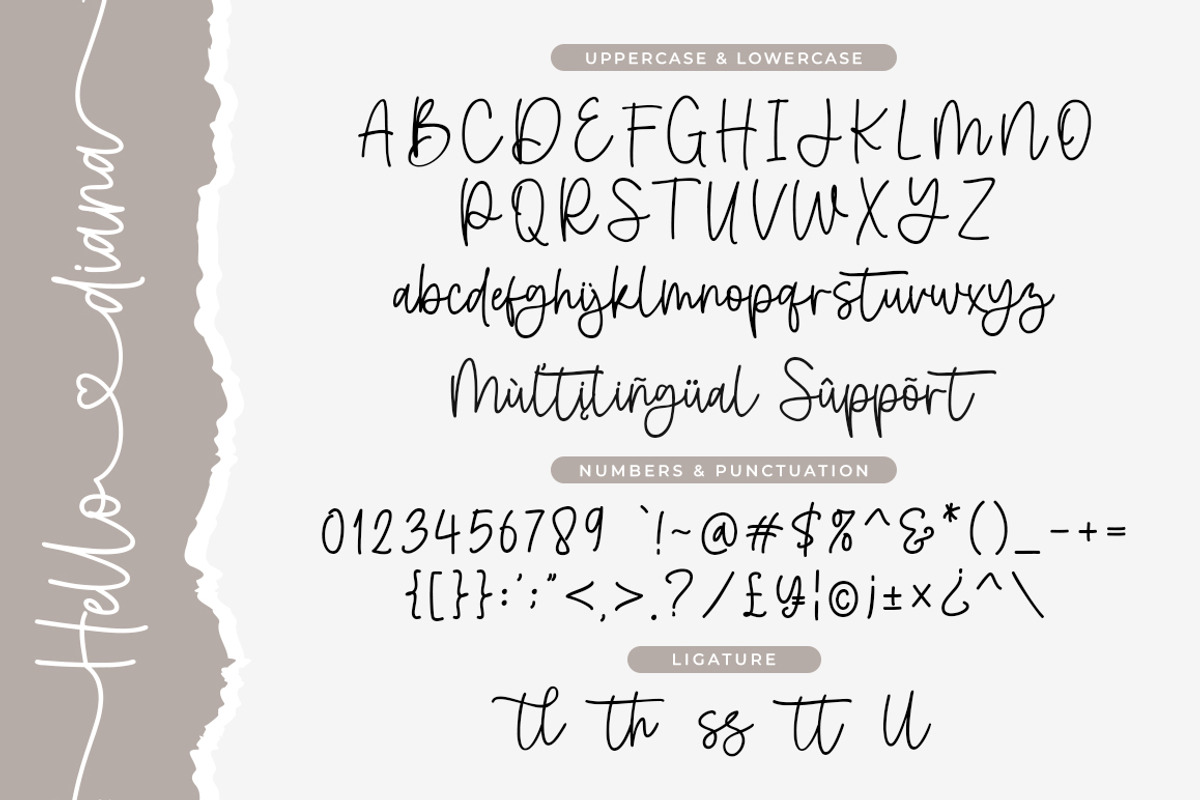 Hello diana
UPPERCASE & LOWERCASE
ABCDEFGHIJKLMNO
PQRSTUVWXYZ
abcdefghijklmnopqrstuvwxyz
Mùľtįlïñgüal Sûppõrt
NUMBERS & PUNCTUATION
0123456789 `!~@#$%^&*()_-+=
{[}}:';"<,>.?/£¥¦©¡±×¿^\
LIGATURE
tl th ss tt ll